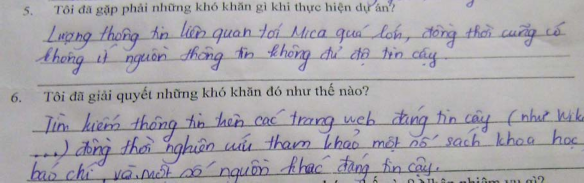 5. Tôi đã gặp phải những khó khăn gì khi thực hiện dự án?
Lượng thông tin liên quan tới Mica quá lớn, đồng thời cũng có
không ít nguồn thông tin không đủ độ tin cậy.
6. Tôi đã giải quyết những khó khăn đó như thế nào?
Tìm kiếm thông tin trên các trang web đáng tin cậy (như Wiki
....) đồng thời nghiên cứu tham khảo một số sách khoa học,
báo chí, và một số nguồn khác đáng tin cậy.